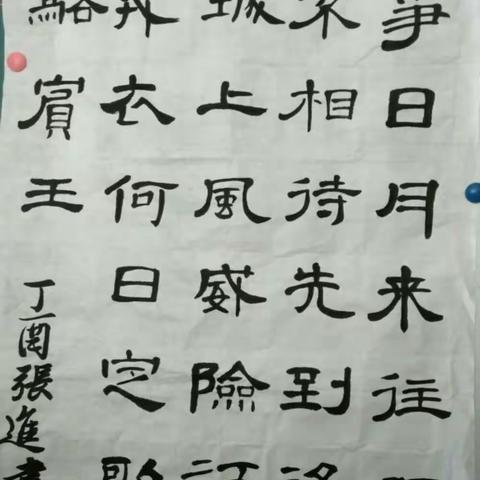 爭日月来往
相待先到
城上風威險江
戎衣何日定歌
駱賓王
丁酉張進書